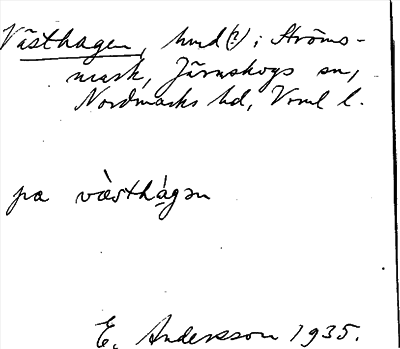 Västhagen, hmd(?) i Ströms-
mark, Järnskogs sn,
Nordmarks hd, Vrml l.
pa væ̀sthágən
E. Andersson 1935.